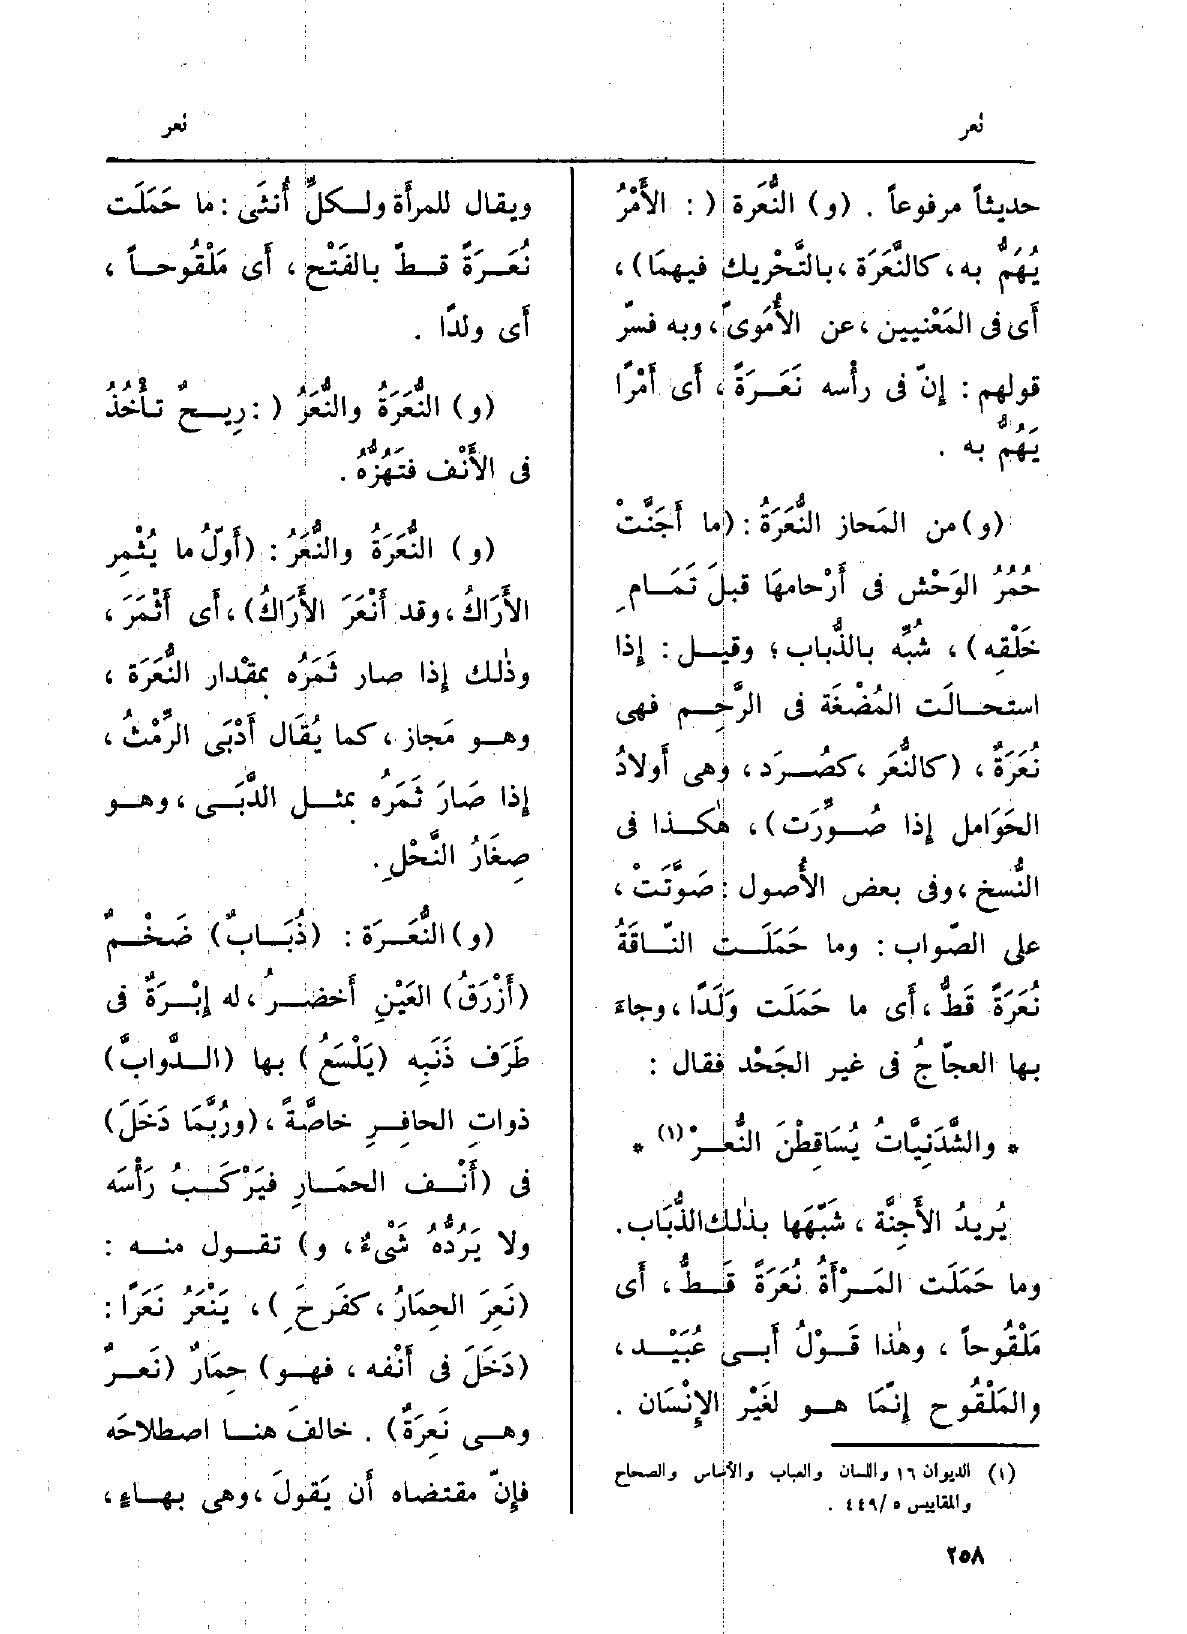 نعر
نعر
حديثاً مرفوعاً . (و) النُّعَرة (: الأَمْرُ
يُهَمُّ به، كالنَّعَرَة، بالتَّحْريك فيهمَا)،
أَى فى المَعْنيين، عن الأُمَوىّ، وبه فسّر
قولهم : إنّ فى رأْسه نَعَـرَةً، أَى أَمْرًا
يَهُمُّ به .
(و) من المَجاز النُّعَرَةُ : (ما أَجَنَّتْ
حُمُرُ الوَحْش فى أَرْحامهَا قبلَ تَمَـام
خَلْقِه)، شُبِّه بالذُّباب؛ وقيـل : إذا
استحـالَت المُضْغَة فى الرَّحِـم فهى
نُعَرَةٌ، (كالنُّعَر، كصُرَد، وهى أَولادُ
الحَوَامل إذا صُـوِّرَت)، هٰكـذا فى
النُّسخ، وفى بعض الأُصول : صَوَّتَتْ،
على الصّواب : وما حَمَلَـت النّـاقَةُ
نُعَرَةً قَطُّ، أَى ما حَمَلَت وَلَدًا، وجاءَ
بها العجّاجُ فى غير الجَحْد فقال :
* والشَّدَنِيَّاتُ يُسَاقِطْنَ النُّعَرْ (١) *
يُريدُ الأَجِنَّة، شَبَّهَها بذٰلك الذُّبَاب.
وما حَمَلَت المَـرْأَةُ نُعَرَةً قَـطُّ، أَى
مَلْقُوحاً، وهٰذا قَـوْلُ أَبـى عُبَيْـد،
والمَلْقُوح إنّمَا هـو لغَيْر الإنْسَان .
(١) الديوان ١٦ واللسان والعباب والأساس والصحاح
والمقاييس ٥/٤٤٩ .
ويقال للمرأة ولـكلِّ أُنثَى : ما حَمَلَت
نُعَـرَةً قـطّ بالفَتْح، أَى مَلْقُوحـاً،
أَى ولدًا .
(و) النُّعَرَةُ والنُّعَرُ (: رِيـحٌ تأْخُذُ
فى الأَنْف فتَهُزُّهُ.
(و) النُّعَرَةُ والنُّعَرُ : (أَوّلُ ما يُثْمِر
الأَرَاكُ، وقد أَنْعَرَ الأَرَاكُ)، أَى أَثْمَرَ،
وذٰلك إذا صار ثَمَرُه بمقْدار النُّعَرَة،
وهـو مَجاز، كما يُقَال أَدْبَى الرِّمْثُ،
إذا صَارَ ثَمَرُه بمثـل الدَّبَـى، وهـو
صِغَارُ النَّحْلِ.
(و) النُّعَـرَة : (ذُبَـابٌ) ضَخْـمٌ
(أَزْرَقُ) العَيْنِ أَخضـرُ، له إبْـرَةٌ فى
طَرَف ذَنَبِه (يَلْسَعُ) بها (الـدَّوابَّ)
ذواتِ الحافِـرِ خاصَّةً، (ورُبَّمَا دَخَلَ)
فى (أَنْـف الحمَـارِ فيَرْكَـبُ رَأْسَه
ولا يَرُدُّهُ شَىْءٌ، و) تقـول منـه :
(نَعِرَ الحِمَارُ، كفَرِحَ)، يَنْعَرُ نَعَرًا :
(دَخَلَ فى أَنْفه، فهـو) حِمَارٌ (نَعـرٌ
وهـى نَعِرَةٌ) . خالفَ هنـا اصطلاحَه
فإنّ مقتضاه أَن يَقولَ، وهى بهـاءٍ،
٢٥٨